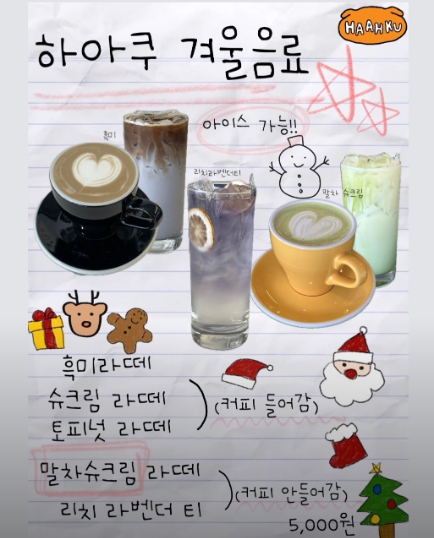 HAAHKU
하아쿠 겨울음료
아이스 가능!!
흑미
리치라벤더티
말차 슈크림
흑미라떼
슈크림 라떼
토피넛 라떼
(커피 들어감)
말차슈크림 라떼
리치 라벤더 티
(커피 안들어감)
5,000원